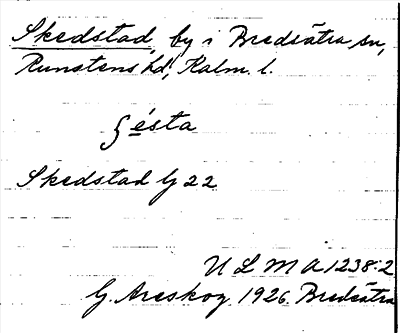 Skedstad, by i Bredsätra sn,
Runstens hd, Kalm. l.
Skedstad by 22
U L M A 1238:2
G. Areskog 1926. Bredsätra